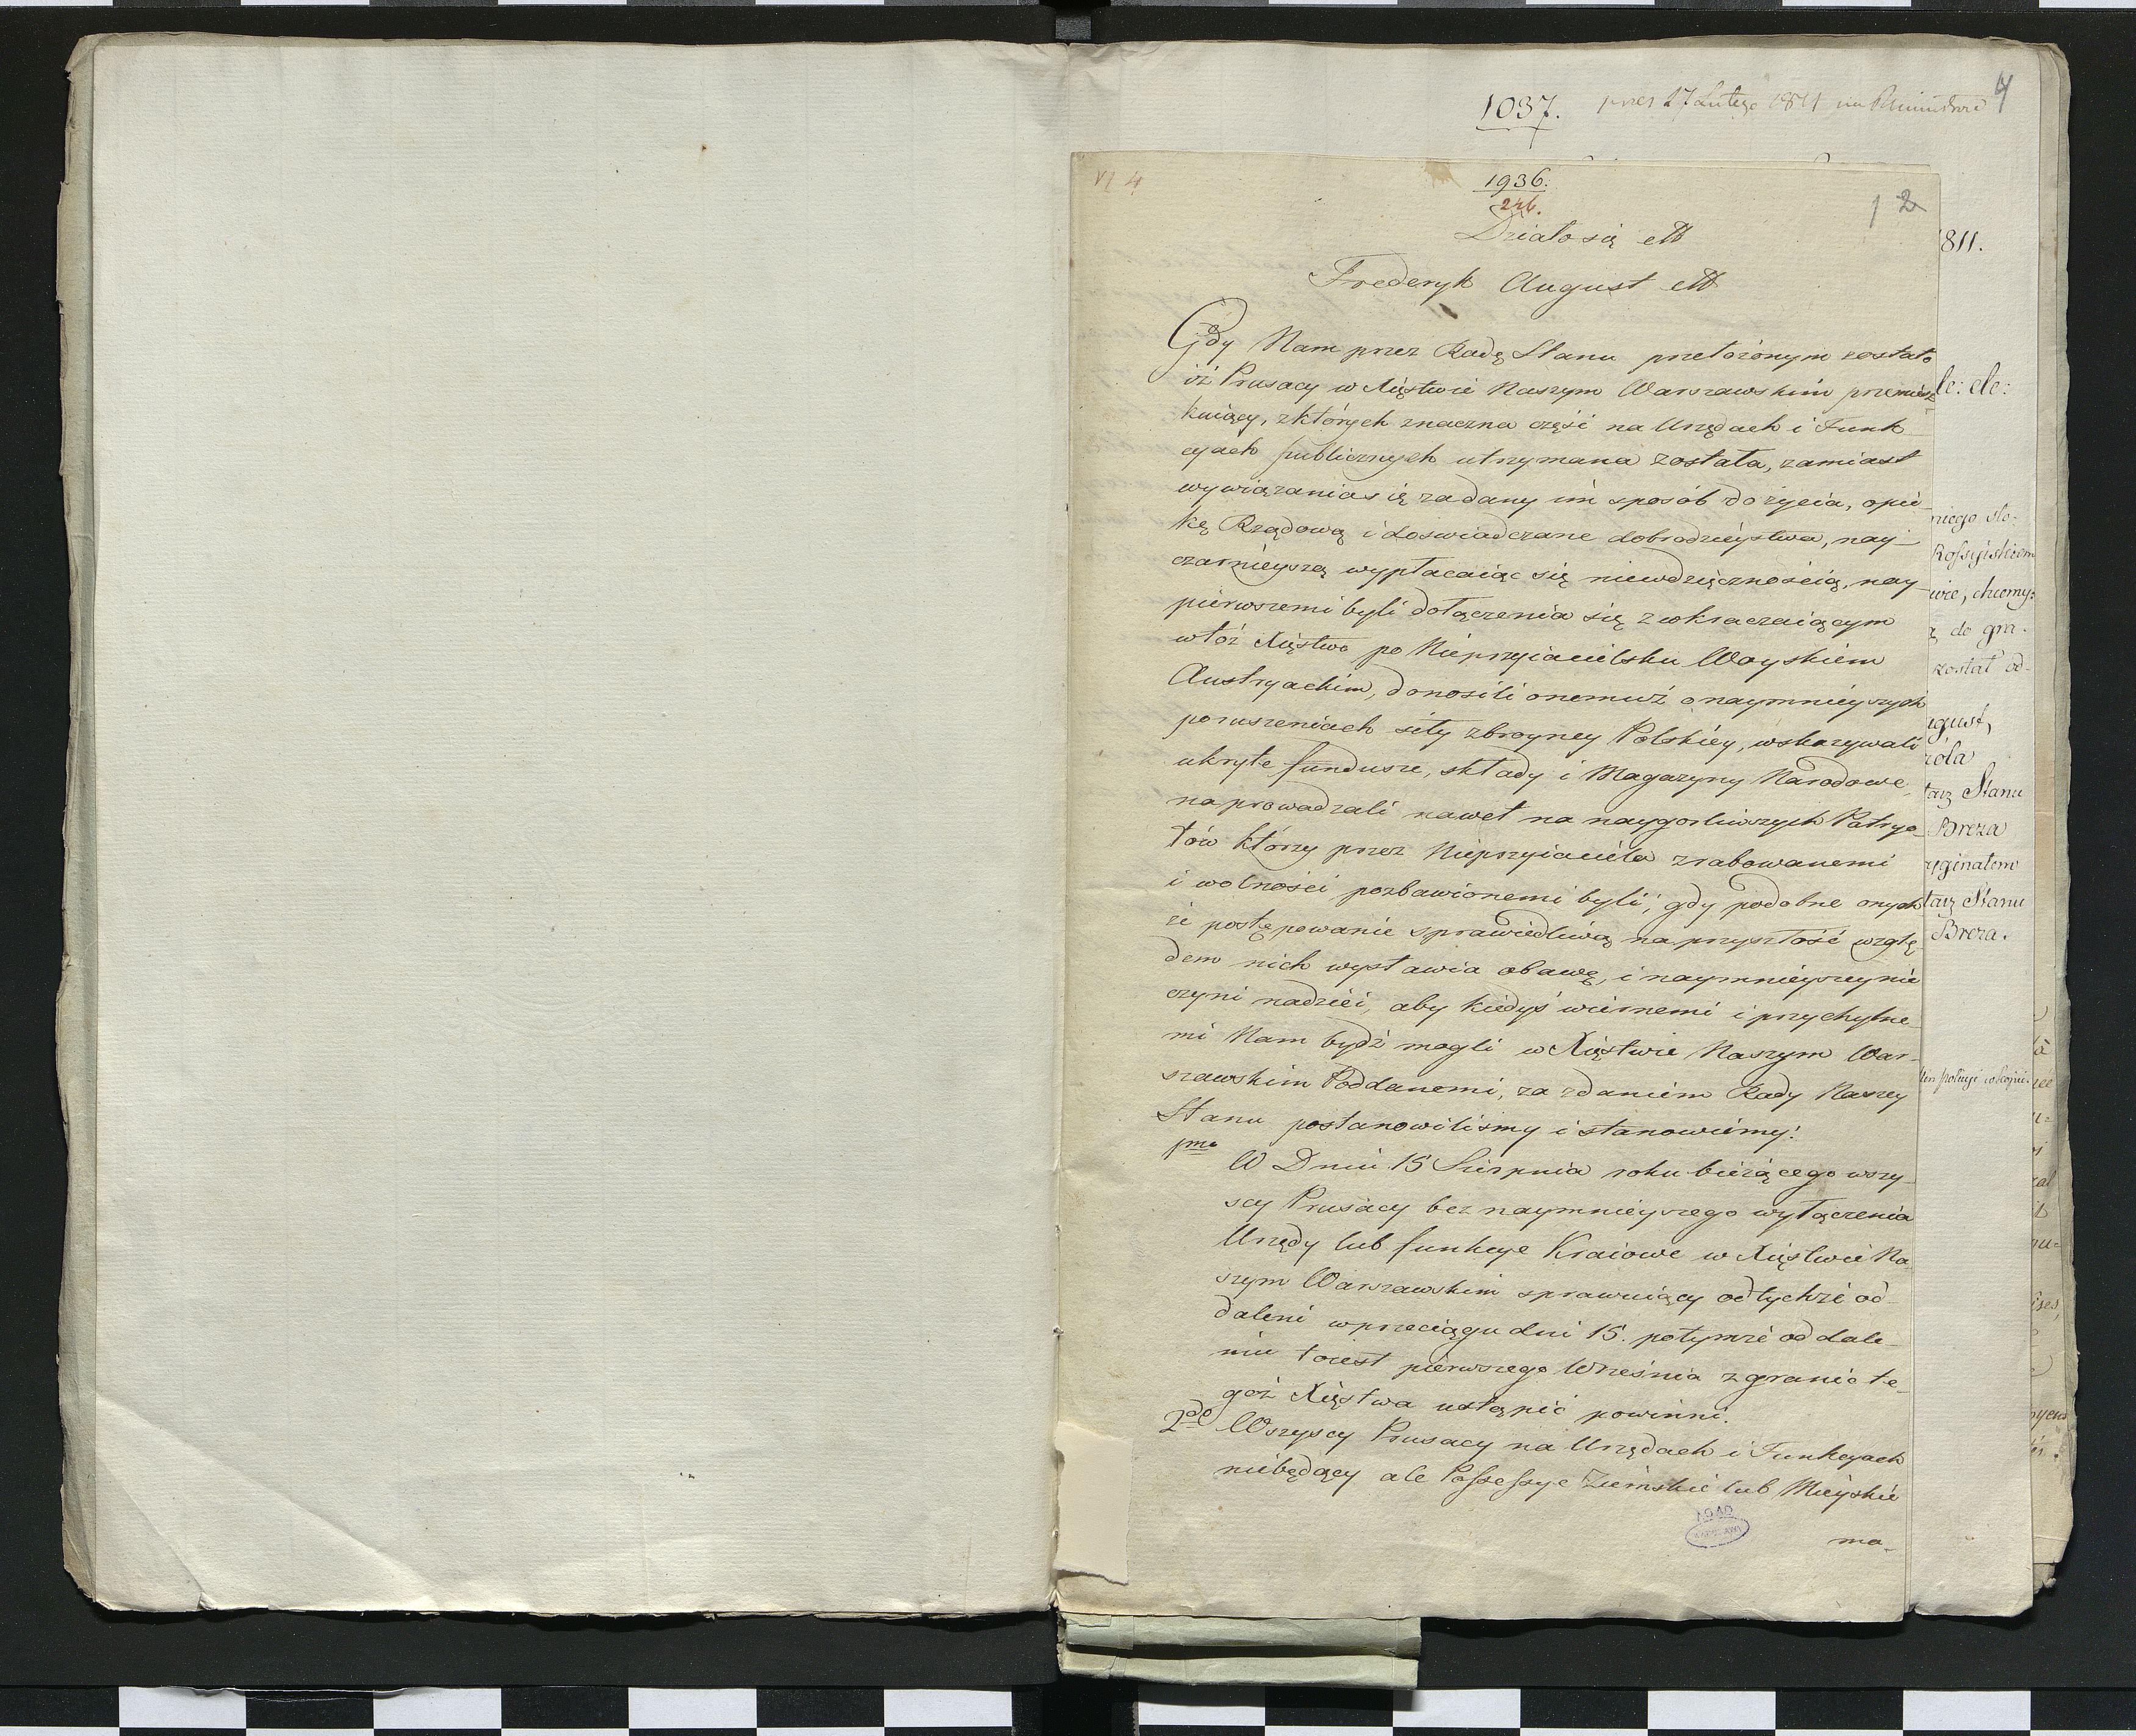 1037.
4
VI 4
1936.
226.
1 2
Działo się ett
Frederyk August ett
Gdy Nam przez Radę Stanu przełożonym zostało
iż Prusacy w Xięstwie Naszym Warszawskim przemiesz
kuiący, z których znaczna część na Urzędach i Funk
cyach publicznych utrzymana została, zamiast
wywiązania się za dany im sposób do życia, opie
kę Rządową i doswiadczane dobrodzieystwa, nay-
czarnieyszą wypłacaiąc się niewdzięcznością, nay
pierwszemi byli do łączenia się z wkraczaiącym
w toż Xięstwo po Nieprzyiacielsku Woyskiem
Austryackim, donosili onemuż o naymnieyszych
poruszeniach siły zbroyney Polskiéy, wskazywali
ukryte fundusze, składy i Magazyny Narodowe,
naprowadzali nawet na naygorliwszych Patryo-
tów którzy przez Nieprzyiaciela zrabowanemi
i wolności pozbawionemi byli; gdy podobne onych
że postępowanie sprawiedliwą na przyszłość wzglę
dem nich wystawia obawę, i naymnieyszey nie
czyni nadziei, aby kiedyś wiernemi i przychylne
mi Nam bydź mogli w Xięstwie Naszym War-
szawskim Poddanemi, za zdaniem Rady Naszey
Stanu postanowiliśmy i stanowiemy:
pmo
W Dniu 15 Sierpnia roku bieżącego wszy-
scy Prusacy bez naymnieyszego wyłączenia
Urzędy lub funkcye Kraiowe w Xięstwie Na
szym Warszawskim sprawuiący od tychże od-
daleni w przeciągu dni 15. po tymże oddale-
niu to iest pierwszego Września z granic te-
goż Xięstwa ustąpić powinni.
2do Wszyscy Prusacy na Urzędach i Funkcyach
niebędący ale Possessye Ziemskie lub Mieyskie
ma-
811.
le: ele:
niego sto-
Rossyiskiem
wie, chcemy:
ą do gra-
został od-
igust,
róla
tarz Stanu
Breza
ryginałem
tarz Stanu
Breza.